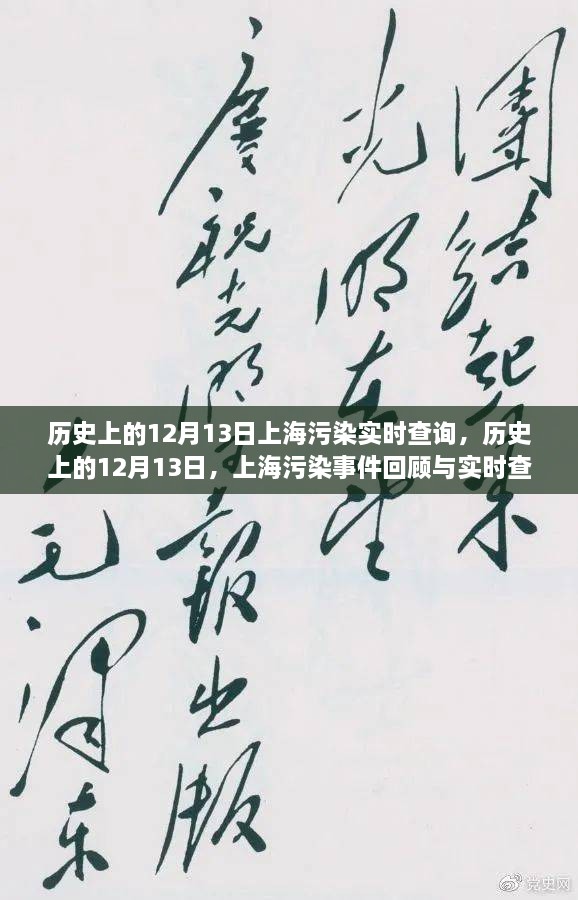 團结起来
光明在望
慶祝光明報出版
毛泽东
历史上的12月13日上海污染实时查询，历史
上的12月13日，上海污染事件回顾与实时查
党史网